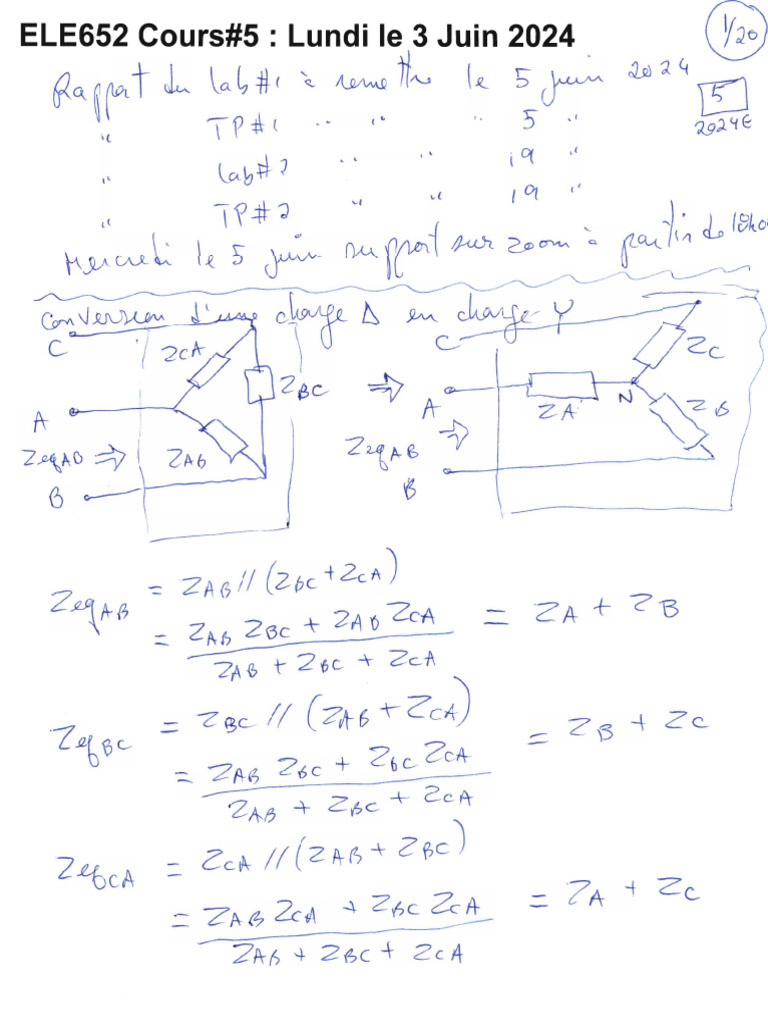 ELE652 Cours#5 : Lundi le 3 Juin 2024
1/20
Rapport du lab#1 à remettre le 5 juin 2024
5
2024E
" TP#1 " " " 5 "
" lab#2 " " 19 "
" TP#2 " " 19 "
Mercredi le 5 juin support sur zoom à partir de 18h0
Conversion d'une charge Δ en charge Y
C ZCA ZBC ⇒ C ZC
A A ZA N ZB
ZeqAB ⇒ ZAB ZeqAB ⇒
B B
ZeqAB = ZAB // (ZBC + ZCA)
= (ZAB ZBC + ZAB ZCA) / (ZAB + ZBC + ZCA) = ZA + ZB
ZeqBC = ZBC // (ZAB + ZCA)
= (ZAB ZBC + ZBC ZCA) / (ZAB + ZBC + ZCA) = ZB + ZC
ZeqCA = ZCA // (ZAB + ZBC)
= (ZAB ZCA + ZBC ZCA) / (ZAB + ZBC + ZCA) = ZA + ZC